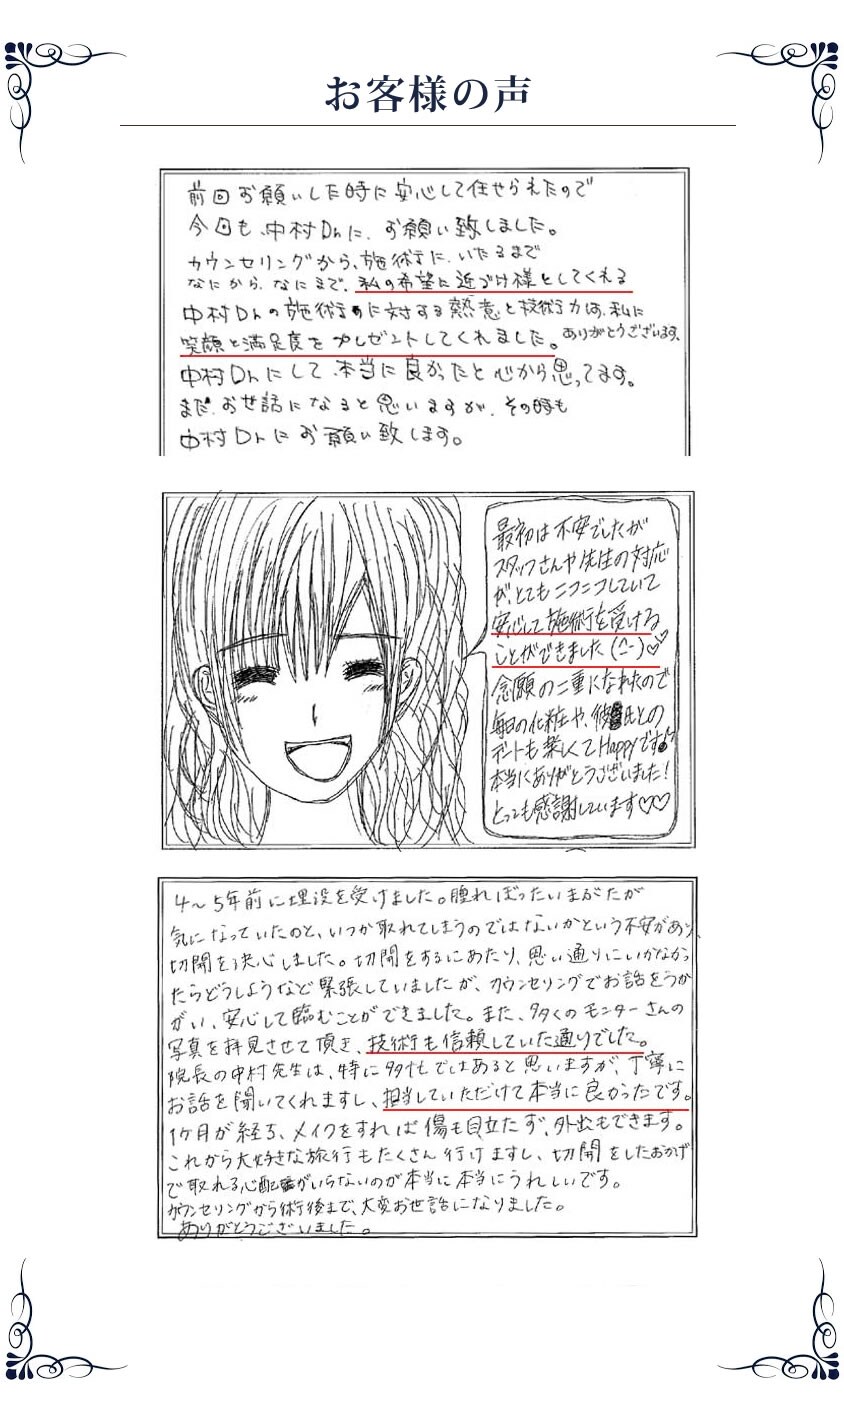 お客様の声
前回お願いした時に安心して任せられたので
今回も、中村Drに、お願い致しました。
カウンセリングから、施術に、いたるまで
なにから、なにまで、私の希望に近づけ様としてくれる
中村Drの施術に対する熱意と技術力は、私に
笑顔と満足度をプレゼントしてくれました。ありがとうございます。
中村Drにして、本当に良かったと心から思ってます。
まだ、お世話になると思いますが、その時も
中村Drにお願い致します。
最初は不安でしたが
スタッフさんや先生の対応
が、とてもニコニコしていて
安心して施術を受ける
ことができました(^-^)♡♡
念願の二重になれたので
毎日の化粧や、彼氏との
デートも楽しくてHappyです♪
本当にありがとうございました!
とっても感謝しています♡♡
4〜5年前に埋没を受けました。腫れぼったいまぶたが
気になっていたのと、いつか取れてしまうのではないかという不安があり、
切開を決心しました。切開をするにあたり、思い通りにいかなかっ
たらどうしようなど緊張していましたが、カウンセリングでお話をうか
がい、安心して臨むことができました。また、多くのモニターさんの
写真を拝見させて頂き、技術も信頼していた通りでした。
院長の中村先生は、特に多忙ではあると思いますが、丁寧に
お話を聞いてくれますし、担当していただけて本当に良かったです。
1ヶ月が経ち、メイクをすれば傷も目立たず、外出もできます。
これから大好きな旅行もたくさん行けますし、切開をしたおかげ
で取れる心配がいらないのが本当に本当にうれしいです。
カウンセリングから術後まで、大変お世話になりました。
ありがとうございました。